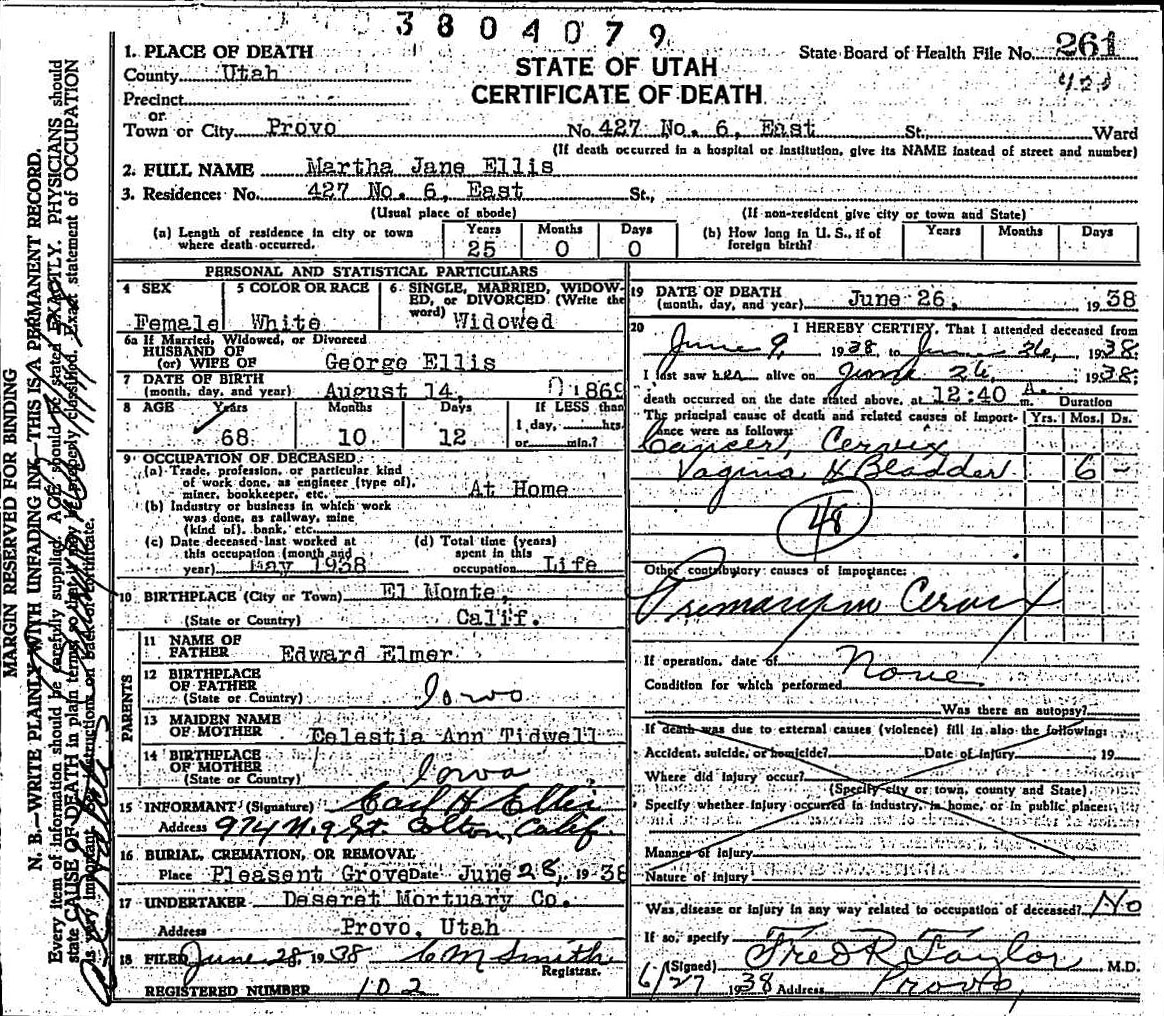 3804079
1. PLACE OF DEATH
State Board of Health File No. 261
County Utah
STATE OF UTAH
Precinct
CERTIFICATE OF DEATH
or
Town or City Provo No. 427 No. 6, East St., Ward
(If death occurred in a hospital or institution, give its NAME instead of street and number)
2. FULL NAME Martha Jane Ellis
3. Residence: No. 427 No. 6, East St.,
(Usual place of abode) (If non-resident give city or town and State)
(a) Length of residence in city or town where death occurred. Years 25 Months 0 Days 0
(b) How long in U. S., if of foreign birth? Years Months Days
PERSONAL AND STATISTICAL PARTICULARS
4 SEX Female
5 COLOR OR RACE White
6. SINGLE, MARRIED, WIDOWED, or DIVORCED (Write the word) Widowed
6a If Married, Widowed, or Divorced
HUSBAND OF
(or) WIFE OF George Ellis
7 DATE OF BIRTH
(month, day, and year) August 14, 1869
8 AGE Years 68 Months 10 Days 12 If LESS than 1 day, hrs. or min.?
9 OCCUPATION OF DECEASED
(a) Trade, profession, or particular kind
of work done, as engineer (type of),
miner, bookkeeper, etc. At Home
(b) Industry or business in which work
was done, as railway, mine
(kind of), bank, etc.
(c) Date deceased last worked at
this occupation (month and
year) May 1938
(d) Total time (years)
spent in this
occupation Life
10 BIRTHPLACE (City or Town) El Monte,
(State or Country) Calif.
PARENTS
11 NAME OF
FATHER Edward Elmer
12 BIRTHPLACE
OF FATHER
(State or Country) Iowa
13 MAIDEN NAME
OF MOTHER Celestia Ann Tidwell
14 BIRTHPLACE
OF MOTHER
(State or Country) Iowa
15 INFORMANT (Signature) Earl H Ellis
Address 974 N. 9 St. Colton, Calif.
16 BURIAL, CREMATION, OR REMOVAL
Place Pleasent Grove Date June 28, 1938
17 UNDERTAKER Deseret Mortuary Co.
Address Provo, Utah
18 FILED June 28, 1938 C M Smith
Registrar.
REGISTERED NUMBER 102
19 DATE OF DEATH
(month, day, and year) June 26, 1938
20 I HEREBY CERTIFY, That I attended deceased from
June 9, 1938, to June 26, 1938.
I last saw her alive on June 26, 1938;
death occurred on the date stated above, at 12:40 A. m. Duration
The principal cause of death and related causes of importance were as follows: Yrs. Mos. Ds.
Cancer, Cervix
Vagina & Bladder 6 -
48
Other contributory causes of importance:
Primary in Cervix
If operation, date of None
Condition for which performed
Was there an autopsy?
If death was due to external causes (violence) fill in also the following:
Accident, suicide, or homicide? Date of injury 19
Where did injury occur?
(Specify city or town, county and State)
Specify whether injury occurred in industry, in home, or in public place:
Manner of injury
Nature of injury
Was disease or injury in any way related to occupation of deceased? No
If so, specify
(Signed) Fred R Taylor M.D.
6/27 1938 Address Provo,
MARGIN RESERVED FOR BINDING
N. B.—WRITE PLAINLY WITH UNFADING INK—THIS IS A PERMANENT RECORD.
Every item of information should be carefully supplied. AGE should be stated EXACTLY. PHYSICIANS should
state CAUSE OF DEATH in plain terms, so that it may be properly classified. Exact statement of OCCUPATION
is very important. See instructions on back of certificate.